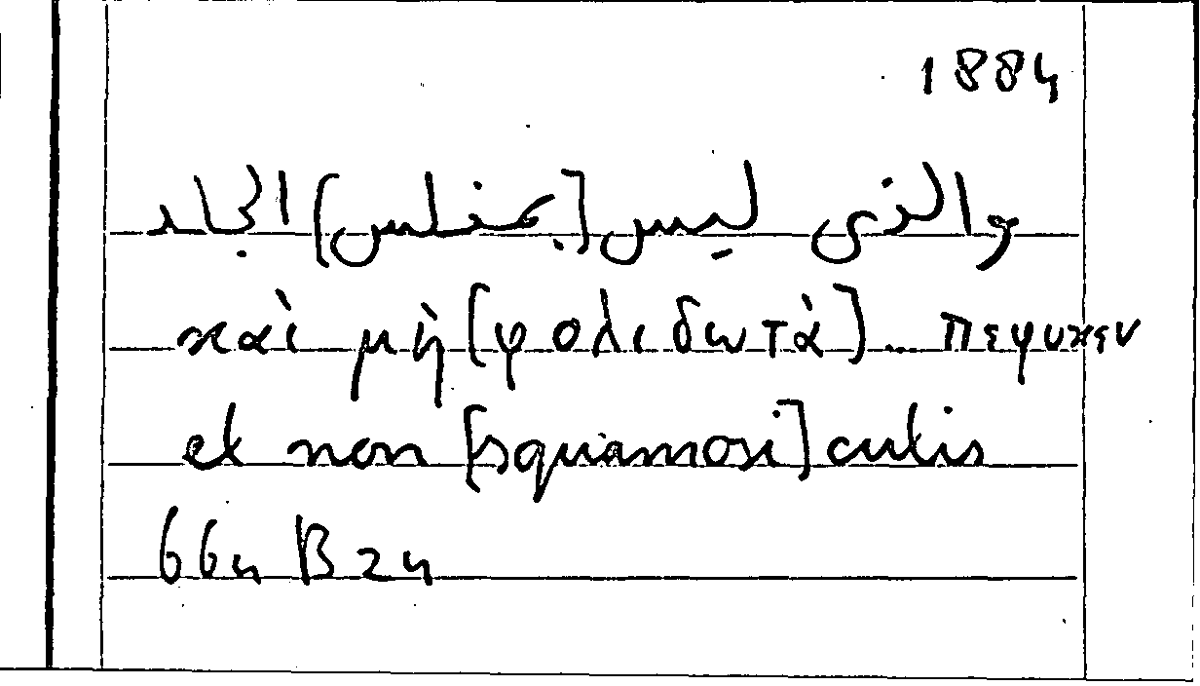 1884
والذى ليس [بمفلس] الجلد
καὶ μὴ [φολιδωτὰ] ... πεφυκεν
et non [squamosi] cutis
664 B 24